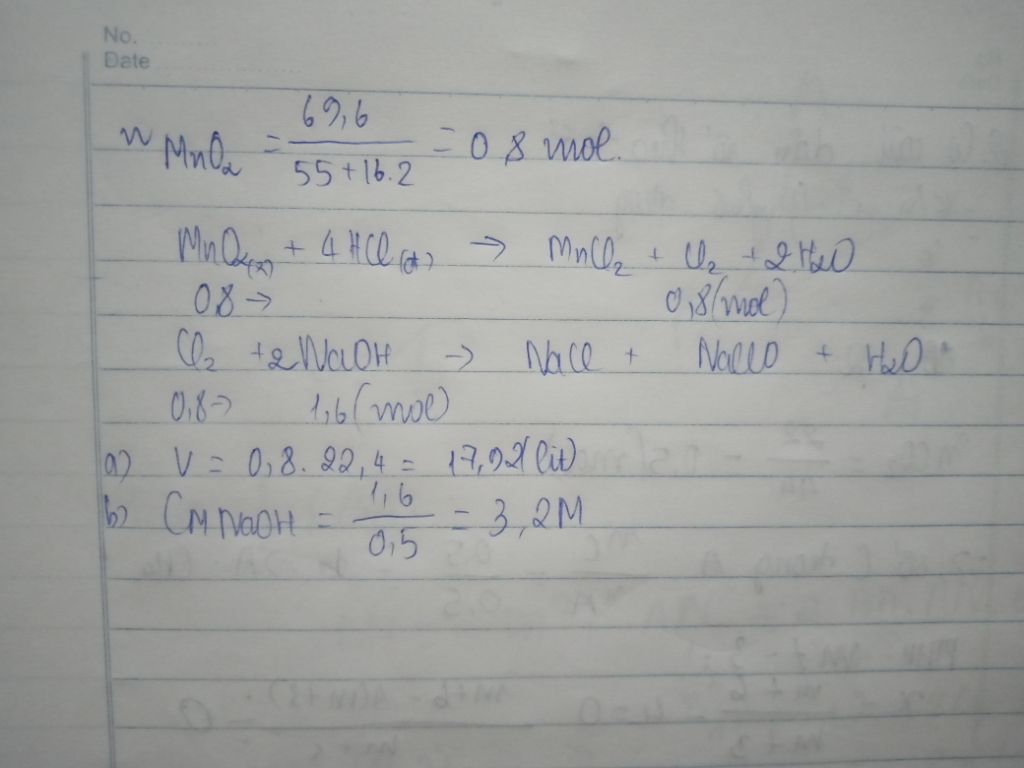 No.
Date
n MnO₂ = 69,6 / (55+16.2) = 0 8 mol.
MnO₂(r) + 4HCl(đ) → MnCl₂ + Cl₂ + 2H₂O
0,8 → 0,8 (mol)
Cl₂ + 2NaOH → NaCl + NaClO + H₂O
0,8 → 1,6 (mol)
a) V = 0,8. 22,4 = 17,92 (lít)
b) CM NaOH = 1,6 / 0,5 = 3,2M